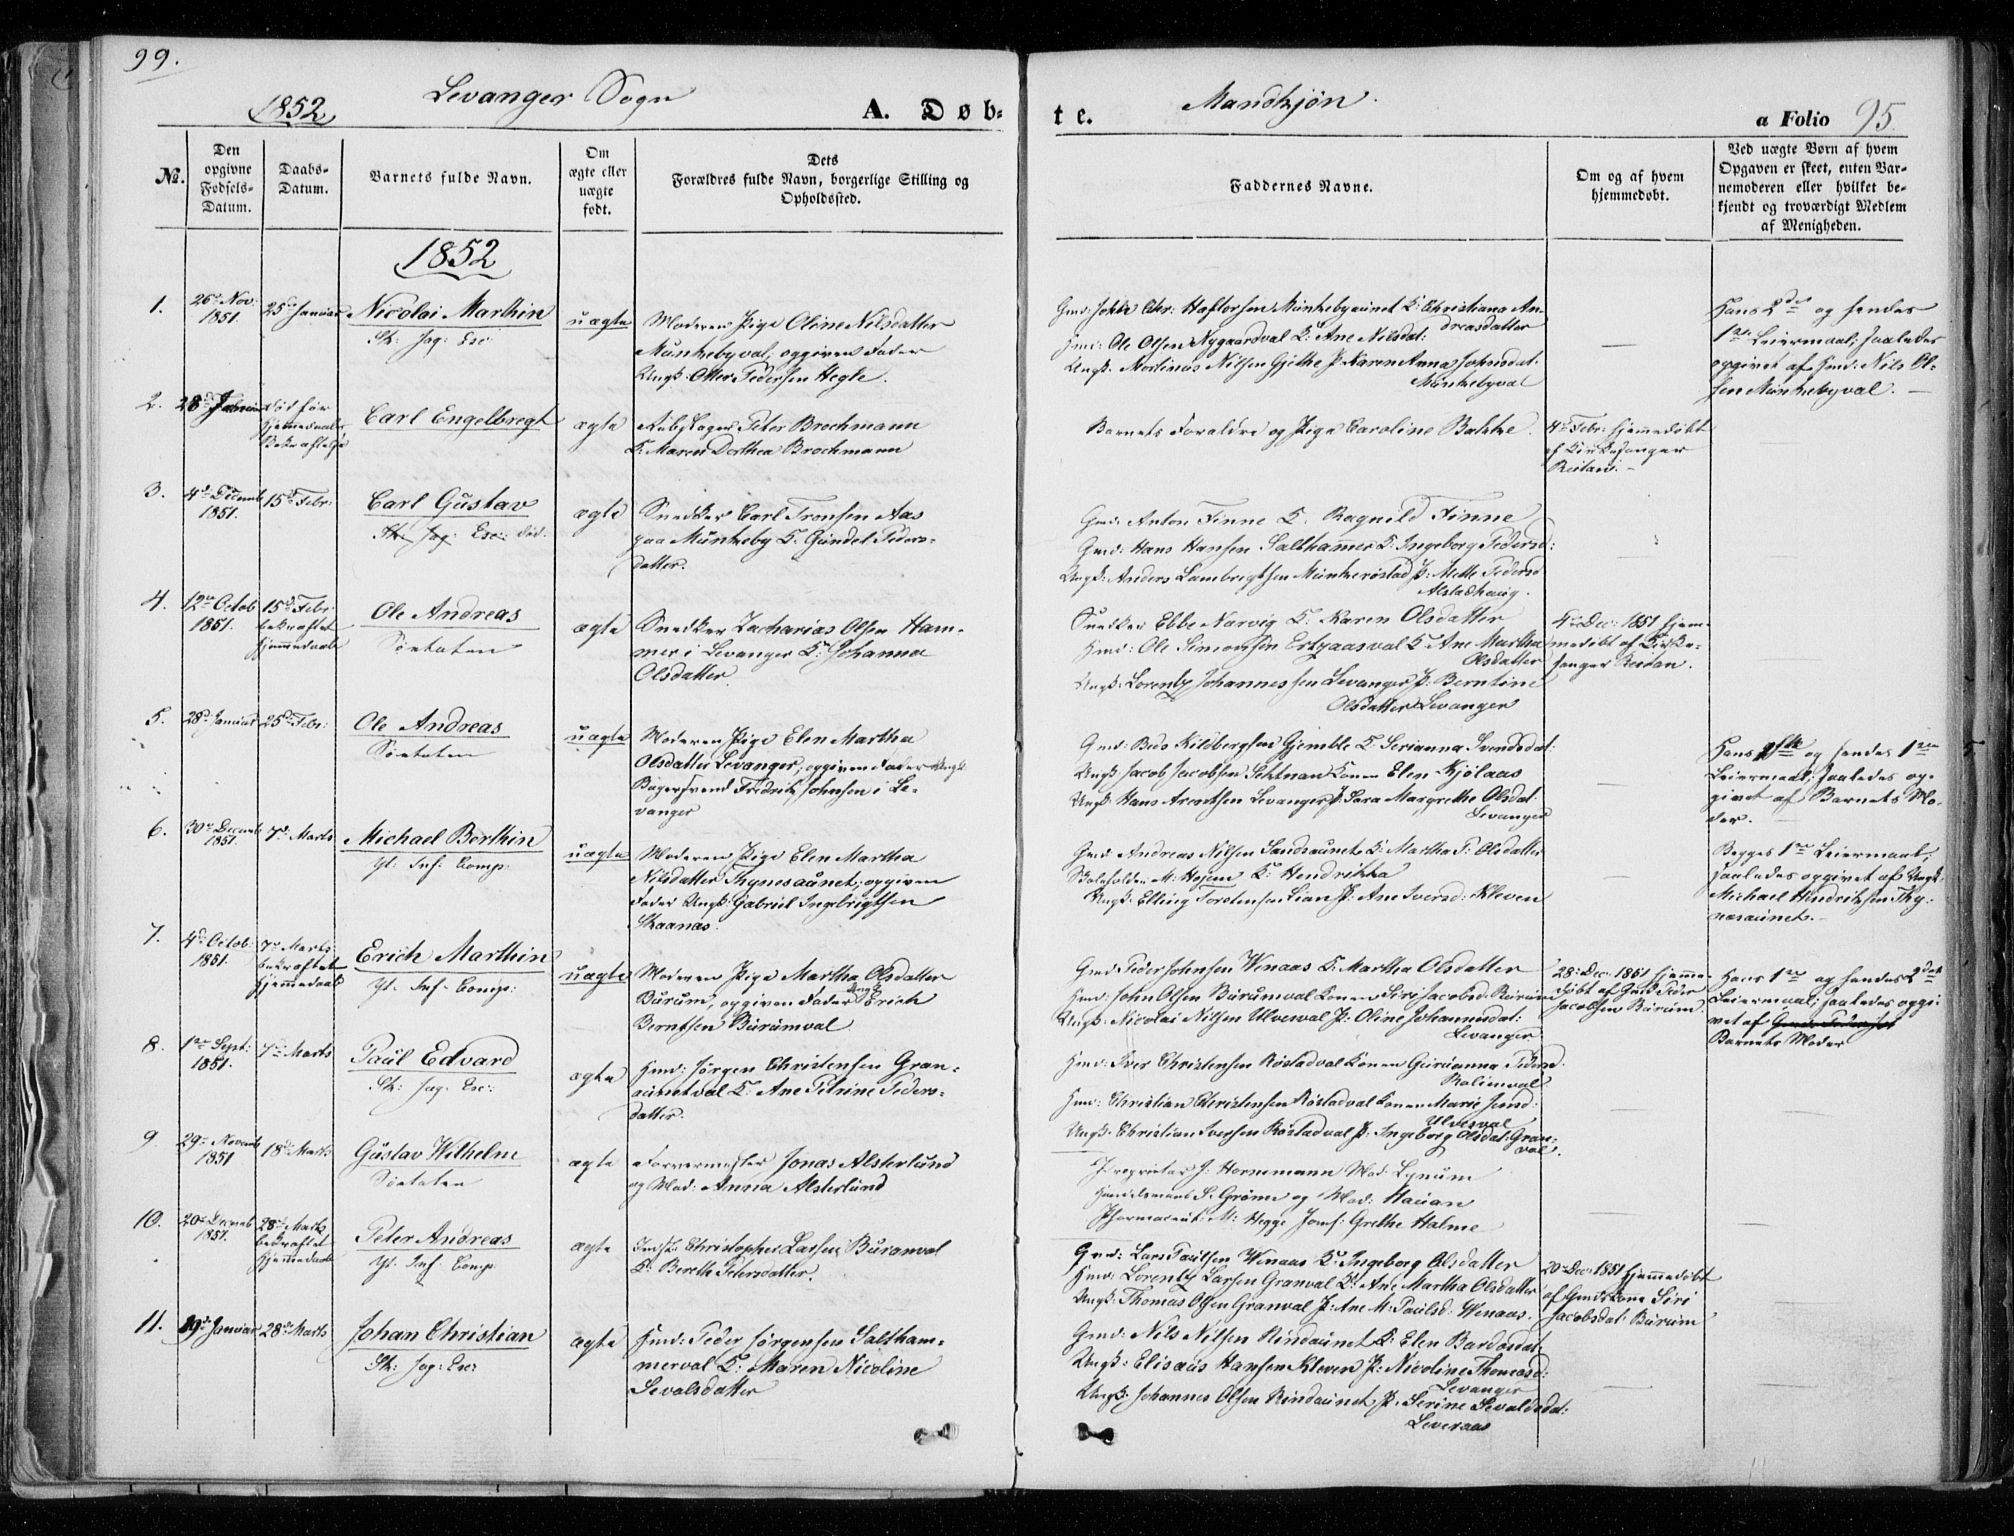 99.
1852
Levanger Sogn
A. Døb-
te.
Mandkjøn.
a Folio 95
№.
Den opgivne Fødsels-Datum.
Daabs-Datum.
Barnets fulde Navn.
Om ægte eller uægte født.
Dets Forældres fulde Navn, borgerlige Stilling og Opholdssted.
Faddernes Navne.
Om og af hvem hjemmedøbt.
Ved uægte Børn af hvem Opgaven er skeet, enten Barnemoderen eller hvilket bekjendt og troværdigt Medlem af Menigheden.
1852
1.
26de Nov: 1851.
25de Januar
Nicolai Marthin
Sk: Jag: Esc:
uægte
Moderen Pige Oline Nilsdatter
Munkebyval, opgiven Fader
Ungk: Otter Pedersen Hegle.
Ole Olsen Nygaardval K: Ane Nilsdat:
Ungk: Martinus Nilsen Gjethe P: Karen Anna Johnsdat:
Munkebyval
Hans 2den og hendes
1ste Leiermaal; saaledes
opgivet af Hmd: Nils Ol-
sen Munkebyval. —
2.
28de Januar
død før
Hjemmedaabs
Bekræftelse
Carl Engelbregt
ægte
Peter Brochmann
K. Maren Dorthea Brochmann
Barnets Forældre og Pige Caroline Bakke.
4de Febr: hjemmedøbt
af Kirkesanger
Reitan. —
3.
4de Decemb 1851.
15de Febr:
Carl Gustav
Sk: Jag: Esc: død.
ægte
Snedker Carl Tronsen Aas
paa Munkeby K. Gundel Peders-
datter.
Gmd: Anton Finne K. Ragnild Finne
Gmd: Hans Hansen Salthammer K: Ingeborg Pedersd:
Ungk: Anders Lambrigtsen Munkerøstad P: Mette Pedersd
Alstadhaug.
4.
12te Octob 1851.
15de Febr:
bekræftet
Hjemmedaab
Ole Andreas
Søetaten
ægte
Snedker Zacharias Olsen Ham-
mer i Levanger K: Johanna
Olsdatter
Snedker Ebbe Narvig K. Karen Olsdatter
Hmd: Ole Simonsen Ertgaasval K Ane Martha
Olsdatter
Ungk: Lorentz Johannessen Levanger P: Berntine
Olsdatter Levanger
4de Dec: 1851 hjem-
medøbt af Kirke-
sanger Reitan.
5.
28de Januar
25de Febr:
Ole Andreas
Søetaten
uægte
Moderen Pige Elen Martha
Olsdatter Levanger, opgiven Fader Ungk:
Bagersvend Fredrik Johnsen i Le-
vanger
Gmd: Beds Kildbergsen Gjemble K Serianna Svendsdat:
Ungk: Jacob Jacobsen Konen Elen Kjølaas
Ungk: Hans Arentsen Levanger P: Sara Margrethe Olsdat:
Levanger
Hans og hendes 1ste
Leiermaal; saaledes op-
givet af Barnets Mo-
der. —
6.
30te Decemb 1851.
7de Marts
Michael Berthin
Yt: Inf: Comp:
uægte
Moderen Pige Elen Martha
Nilsdatter Thynesaunet; opgiven
Fader Ungk: Gabriel Ingebrigtsen
Skaanas.
Gmd: Andreas Nilsen Sandsaunet K: Martha F. Olsdatter
M: Hojem K: Hendrikka
Ungk: Elling Torstensen Lian P: Ane Iversd: Kleven
Begges 1ste Leiermaal;
saaledes opgivet af Ungk:
Michael Hendriksen Thy-
nesaunet. —
7.
4de Octob: 1851.
7de Marts
bekræftet
Hjemmedaab
Erich Marthin
Yt: Inf: Comp:
uægte
Moderen Pige Martha Olsdatter
Burum, opgiven Fader Ungk: Erich
Berntsen Burumval
Gmd: Peder Johnsen Wenaas K: Martha Olsdatter
Hmd: John Olsen Burumval Konen Siri Jacobsd: Burum
Ungk: Nicolai Nilsen Ulvesval P: Oline Johannesdat:
Levanger
28: Dec: 1851 hjemme-
døbt af Gmd: Peder
Jacobsen Burum.
Hans 1ste og hendes 2det
Leiermaal; saaledes opgi-
vet af
Barnets Moder
8.
1ste Sept: 1851.
7de Marts
Paul Edvard
Sk: Jag: Esc:
ægte
Hmd: Jørgen Christensen Gran-
aunetval K. Ane Petrine Peders-
datter.
Hmd: Iver Christensen Røstadval Konen Gurianna Pedersd:
Hmd: Christian Christensen Røstadval Konen Marie Jensd:
Ulvesval
Ungk: Christian Iversen Røstadval P: Ingeborg Olsdat: Gran-
val.
9.
29de Novemb 1851
18de Marts
Gustav Wilhelm
Søetaten
ægte
Farvermester Jonas Alsterlund
og Mad: Anna Alsterlund
Proprietær J: Hornemann Mad: Lynum
Handelsmand S. Grønn og Mad: Hauan
Pharmaceut: M: Hegge Jomf: Grethe Halme
10.
20de Decemb 1851.
28de Marts
bekræftet
Hjemmedaab
Peter Andreas
Yt: Inf: Comp:
ægte
Indst: Christopher Larsen Buranval
K: Bereth Petersdatter.
Gmd: Lars Paulsen Wenaas K: Ingeborg Olsdatter
Hmd: Lorentz Larsen Granval K: Ane Martha Olsdatter
Ungk: Thomas Olsen Granval P: Ane M: Paulsd: Wenaas.
20de Dec: 1851 hjemmedøbt
af Gmdskone Siri
Jacobsdat: Burum
11.
19de Januar
28de Marts
Johan Christian
Sk: Jag: Esc:
ægte
Hmd: Peder Jørgensen Saltham-
merval K: Maren Nicoline
Sevalsdatter
Gmd: Nils Nilsen Rindaunet K: Elen Bardosdat:
Ungk: Elisæus Hansen Kleven P: Nicoline Thomasd:
Levanger
Ungk: Johannes Olsen Rindaunet P. Serine Sevaldsdat:
Leveraas